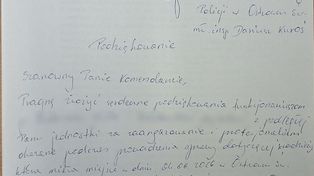 Policji w Ostrowi
insp. Dariusz
Podziękowanie
Szanowny Panie Komendancie,
Pragnę złożyć serdeczne podziękowania funkcjonariuszom
z podległej
Panu jednostki za zaangażowanie i profesjonalizm
okazane podczas prowadzenia sprawy dotyczącej kradzieży,
która miała miejsce w dniu w Ostrowi